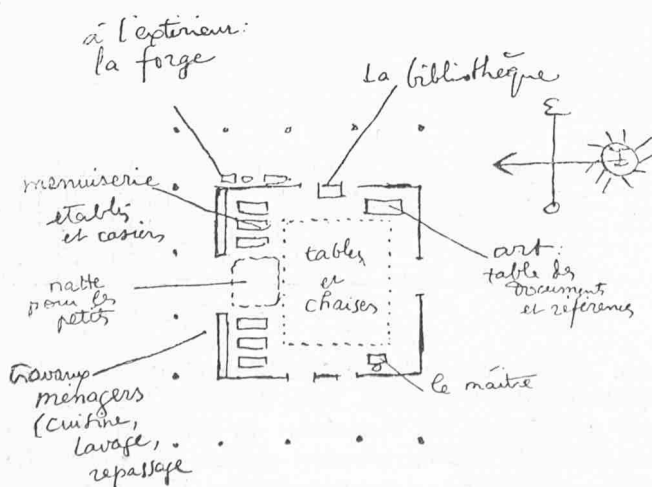 à l'extérieur:
la forge
La bibliothèque
E
menuiserie
etablis
et casiers
tables
et
chaises
art:
table des
documents
et références
natte
pour les
petits
travaux
ménagers
(cuisine,
lavage,
repassage
le maître
O